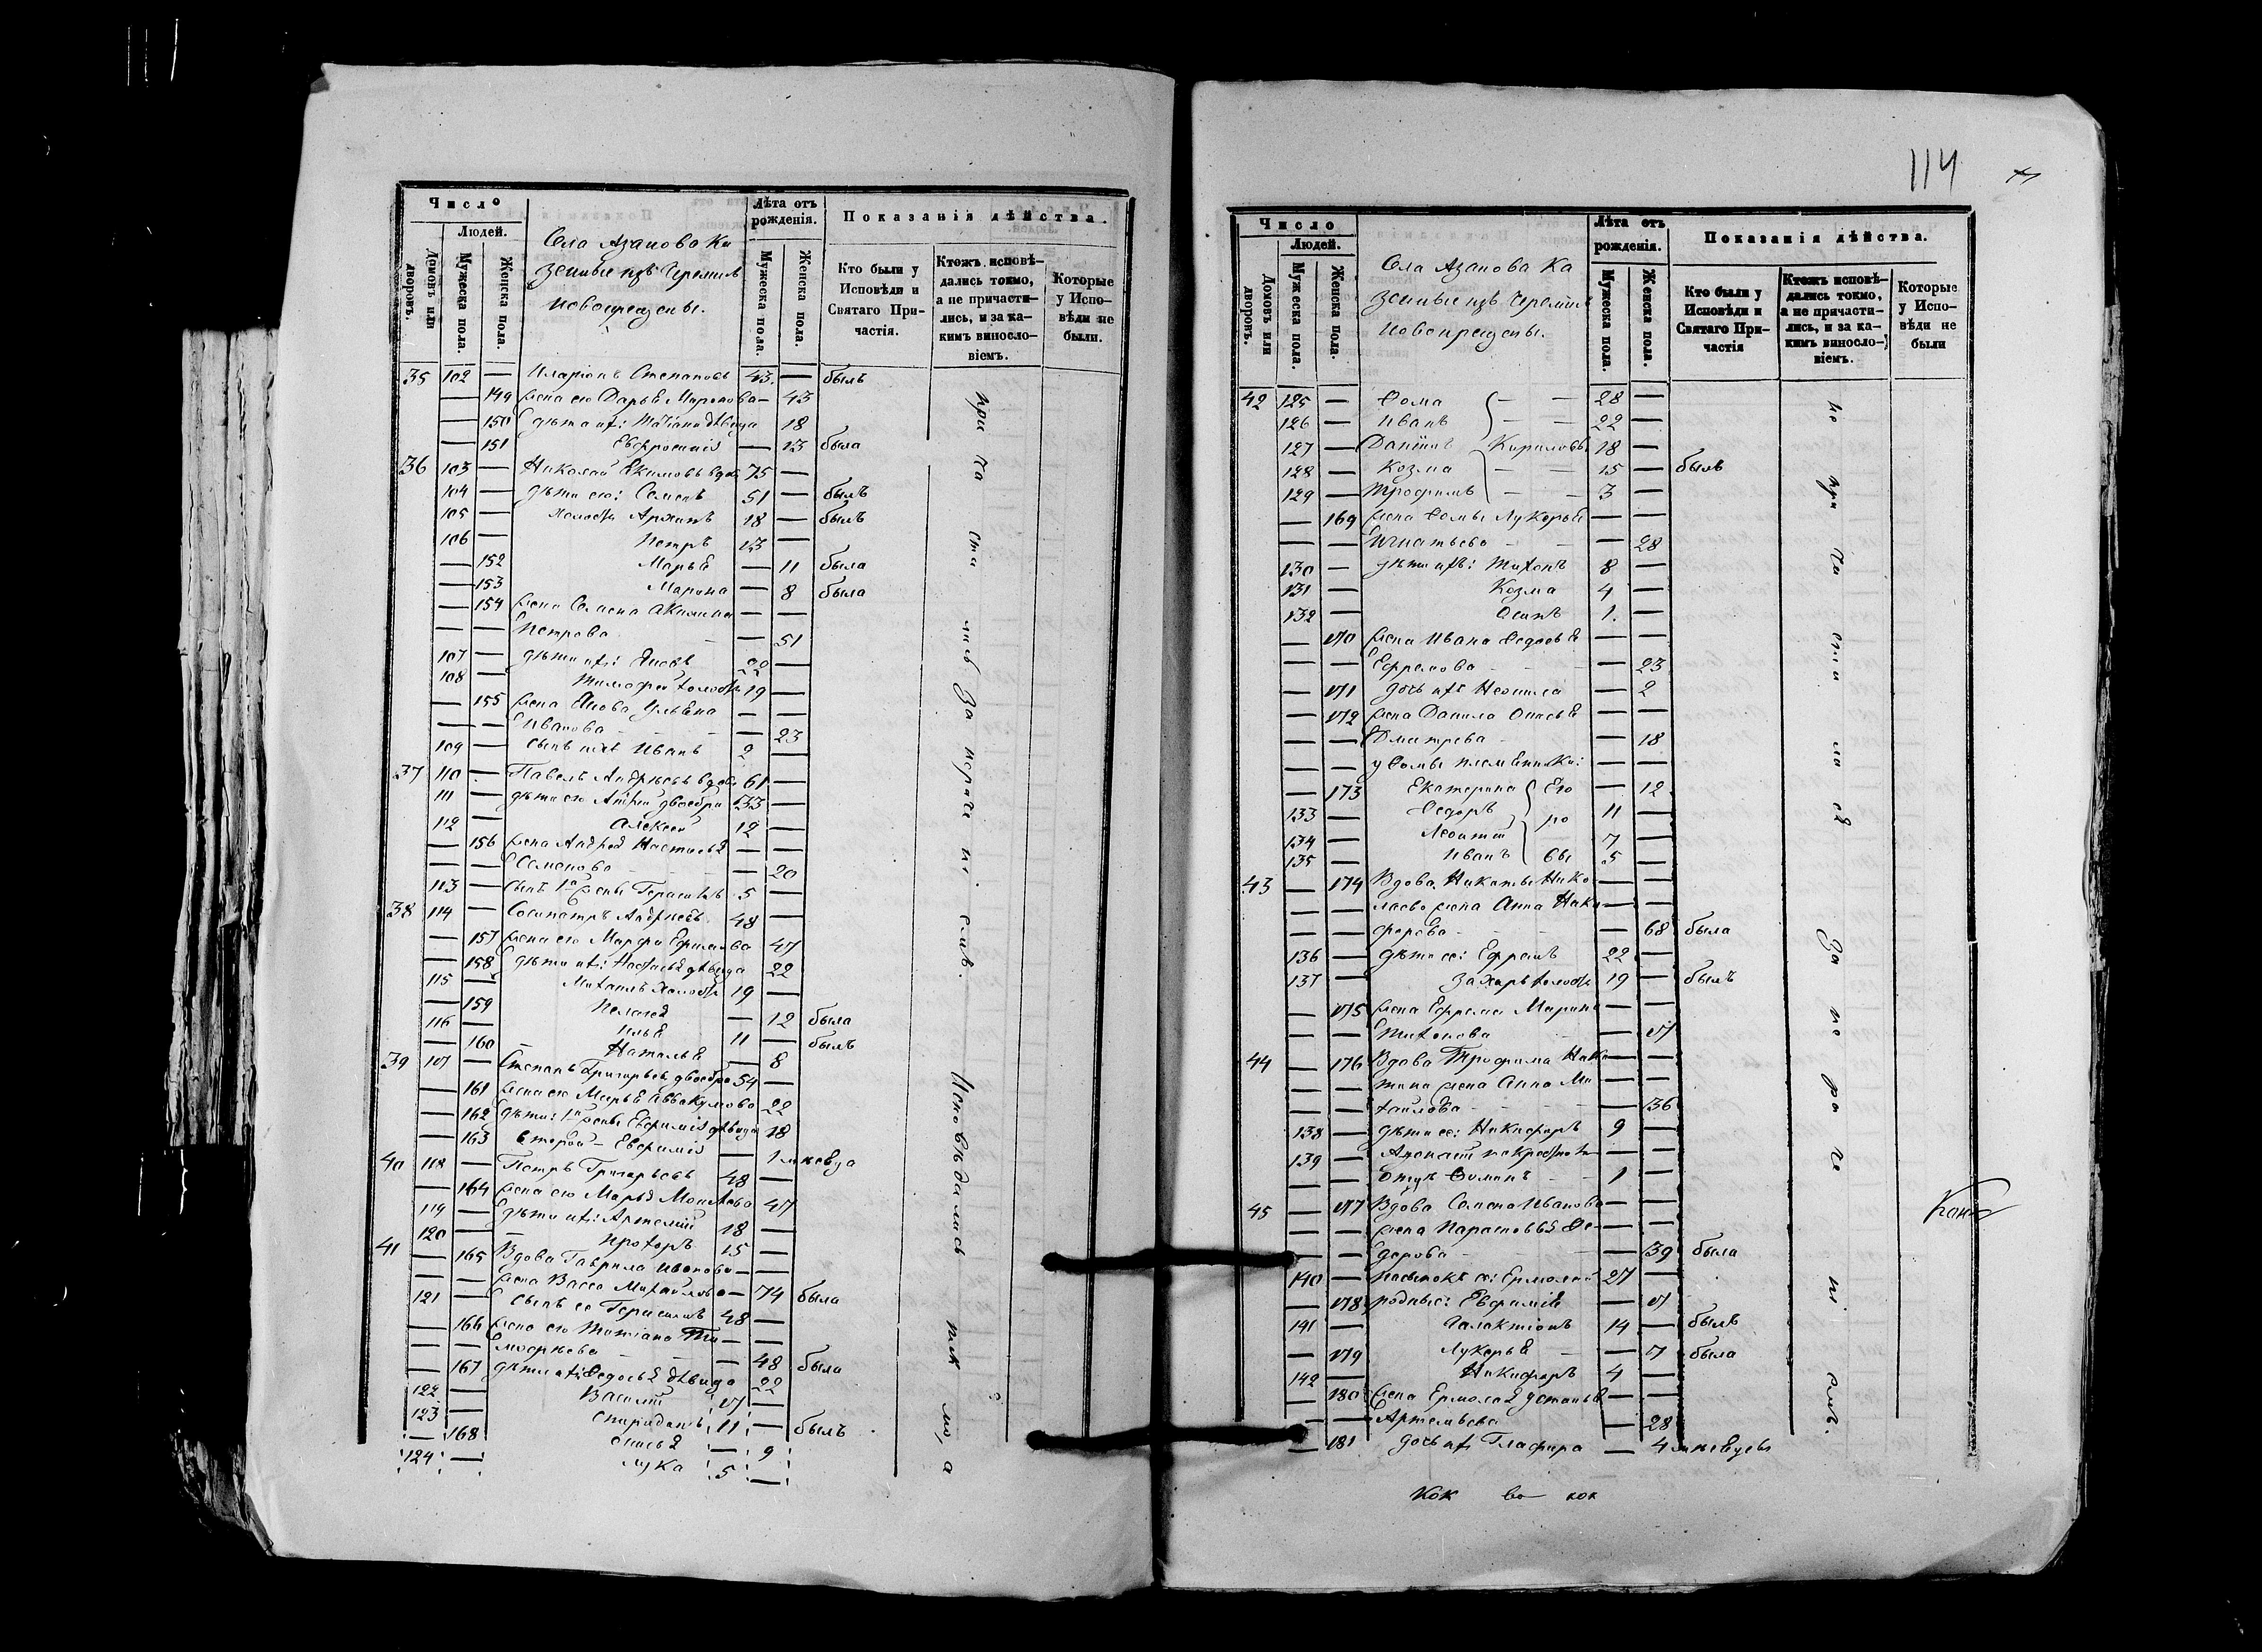 Число
Людей.
Домовъ или дворовъ.
Мужеска пола.
Женска пола.
Села Азанова Ка
зенные изъ Черемисъ
новокрещены.
Лѣта отъ рожденія.
Мужеска пола.
Женска пола.
Показанія дѣйства.
Кто были у Исповѣди и Святаго Причастія.
Ктожъ исповѣдались токмо, а не причастились, и за какимъ винословіемъ.
Которые у Исповѣди не были.
35 102 — Иларіонъ Степановъ 43. — былъ
— 149 жена его Дарья Миронова — 43
— 150 дѣти ихъ: Татіана дѣвица 18
— 151 Евфросинія — 13 была
36 103 — Николай Екимовъ вдовъ 75 —
104 — дѣти его: Семенъ 51 — былъ
105 — холостъ Архипъ 18 — былъ
106 — Петръ 13 —
— 152 Марья — 11 была
— 153 Марина — 8 была
— 154 жена Семена Акилина — —
— — Петрова — 51
107 — дѣти ихъ: Яковъ 22 —
108 — Тимофей холостъ 19 —
— 155 жена Якова Ульяна — —
— — Иванова — 23
109 — сынъ ихъ Иванъ 2 —
37 110 — Павелъ Андреевъ вдовъ 61 —
111 — дѣти его Андрей двоебра 33 —
112 — Алексей 12 —
— 156 жена Андрея Настасья — —
— — Семенова — 20
113 — сынъ 1й жены Герасимъ 5 —
38 114 — Сосипатръ Андреевъ 48 —
— 157 жена его Марфа Ефимова 47
— 158 дѣти ихъ: Настасья дѣвица 22
115 — Михаилъ холостъ 19 —
— 159 Пелагея — 12 была
116 — Илья 11 — былъ
— 160 Наталья — 8
39 117 — Степанъ Григорьевъ двоебра 54 —
— 161 жена его Марья Аввакумова 22
— 162 дѣти: 1й жены Евфимія дѣвица 18
— 163 второй — Евфимія — 1 млнвца
40 118 — Петръ Григорьевъ 48 —
— 164 жена его Марья Моисеева 47
119 — дѣти ихъ: Артемій 18 —
120 — Прохоръ 15 —
41 — 165 Вдова Гаврила Иванова — —
— — жена Васса Михайлова — 74 была
121 — сынъ ее Герасимъ 48 —
— 166 жена его Татіана Ти — —
— — мофеева — 48 была
— 167 дѣти ихъ: Федосья дѣвица 22
122 — Василій 17 —
123 — Спиридонъ 11 — былъ
— 168 Анисья — 9
124 — Лука 5 —
Исповѣдались токмо, а причастились за нераченіемъ.
114
Число
Людей.
Домовъ или дворовъ.
Мужеска пола.
Женска пола.
Села Азанова Ка
зенные изъ Черемисъ
новокрещены.
Лѣта отъ рожденія.
Мужеска пола.
Женска пола.
Показанія дѣйства.
Кто были у Исповѣди и Святаго Причастія
Ктожъ исповѣдались токмо, а не причастились, и за какимъ винословіемъ.
Которые у Исповѣди не были
42 125 — Фома — — 28 —
126 — Иванъ — — 22 —
127 — Даніилъ Кириловы 18 —
128 — Козма — — 15 — былъ
129 — Трофимъ — — 3 —
— 169 жена Фомы Лукерья — —
— — Игнатьева — 28
130 — дѣти ихъ: Тихонъ 8 —
131 — Козма 4 —
132 — Осипъ 1. —
— 170 жена Ивана Федосья — —
— — Ефремова — 23
— 171 дочь ихъ Неонила — 2
— 172 жена Данила Анисья — —
— — Дмитрева — 18
— — у Фомы племянники: — —
— 173 Екатерина Его — 12
133 — Федоръ ро 11 —
134 — Леонтій 7 —
135 — Иванъ вы 5 —
43 — 174 Вдова Никиты Нико — —
— — лаева жена Анна Ники — —
— — форова — 68 была
136 — дѣти ее: Ефремъ 22 —
137 — Захаръ холостъ 19 — былъ
— 175 жена Ефрема Марина — —
— — Тихонова — 17
44 — 176 Вдова Трофима Ники — —
— — тина жена Анна Ми — —
— — хаилова — 36
138 — дѣти ее: Никифоръ 9 —
139 — — —
— — 1 —
45 — 177 Вдова Семена Иванова — —
— — жена Парасковья Фе — —
— — дорова — 39 была
140 — пасынокъ ее: Ермолай 27 —
— 178 родные: Евфимія — 17
141 — Галактіонъ 14 — былъ
— 179 Лукерья — 7 была
142 — Никифоръ 4 —
— 180 жена Ермолая Устинья — —
— — Артемьева — 28
— 181 дочь ихъ Глафира — 4 млнвцы
не причастились за нераченіемъ.